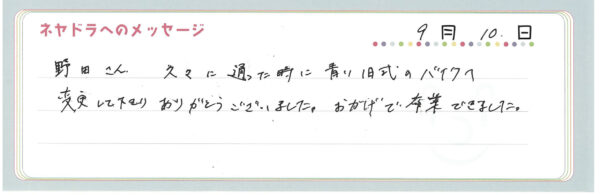 ネヤドラへのメッセージ
9月10.日
野田さん 久々に通った時に青い旧式のバイクへ
変更して下さりありがとうございました。おかげで卒業できました。